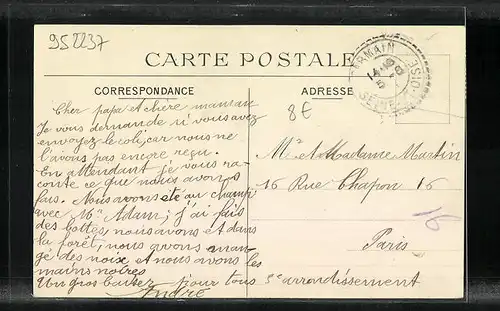 952237
CARTE POSTALE
CORRESPONDANCE
ADRESSE
8€
GERMAIN
SEINE-ET-OISE
Cher papa et chère maman
Je vous demande si vous avez
envoyez le colis, car nous ne
l'avons pas encore reçu.
En attendant je vous ra-
conte ce que nous avons
fais. Nous avons été au champ
avec Mr Adam; j'ai fais
des bottes, nous avons et dans
la forêt, nous avons man-
gé des noix et nous avons les
mains noires
Un gros baiser pour tous
André
Mr et Madame Martin
16 Rue Chapon 16
Paris
3e arrondissement
16